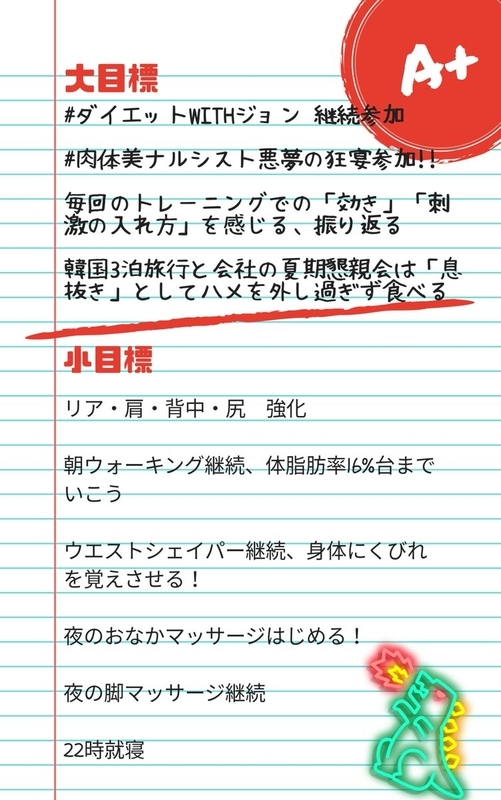 A+
大目標
#ダイエットWITHジョン 継続参加
#肉体美ナルシスト悪夢の狂宴参加!!
毎回のトレーニングでの「効き」「刺
激の入れ方」を感じる、振り返る
韓国3泊旅行と会社の夏期懇親会は「息
抜き」としてハメを外し過ぎず食べる
小目標
リア・肩・背中・尻　強化
朝ウォーキング継続、体脂肪率16%台まで
いこう
ウエストシェイパー継続、身体にくびれ
を覚えさせる！
夜のおなかマッサージはじめる！
夜の脚マッサージ継続
22時就寝